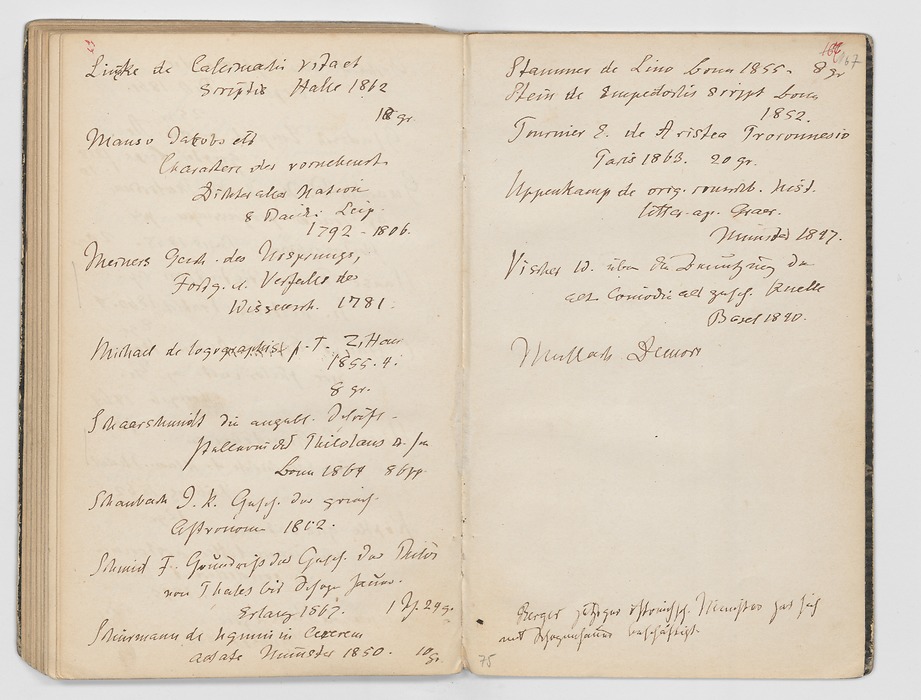 Linke de Calermatis vita et
scriptis Halle 1862
18 gr.
Manso Jakobs etc
Charaktere der vornehmst.
Dichter aller Nation
8 Bände. Leip.
1792 - 1806.
Meiners Gesch. des Ursprungs,
Fortg. u. Verfalles der
Wissensch. 1781.
Michael de logographis p. I. Zittau
1855. 4.
8 gr.
Schaarschmidt die angebl. Schrift-
stellerei des Philolaus
Bonn 1864
Schaubach J. K. Gesch. der griech.
Astronomie 1802.
Schmid F. Grundriss der Gesch. der Philos
von Thales bis Schopenhauer.
Erlang 1867. 1 Th. 24 gr.
Schürmann de hymni in Cererem
aetate Münster 1850. 10 gr.
167
Stammer de Lino Bonn 1855. 8 gr
Stein de Empedoclis script Bonn
1852.
Tournier E. de Aristea Proconnesio
Paris 1863. 20 gr.
Uppenkamp de orig. conscrib. hist.
litter. ap. Graec.
Münster 1847.
Vischer W. über die Benutzung der
alt. Comödie als gesch. Quelle
Basel 1840.
Mullach Democr
Berger jetziger östreichsch. Minister hat sich
mit Schopenhauer beschäftigt.
75